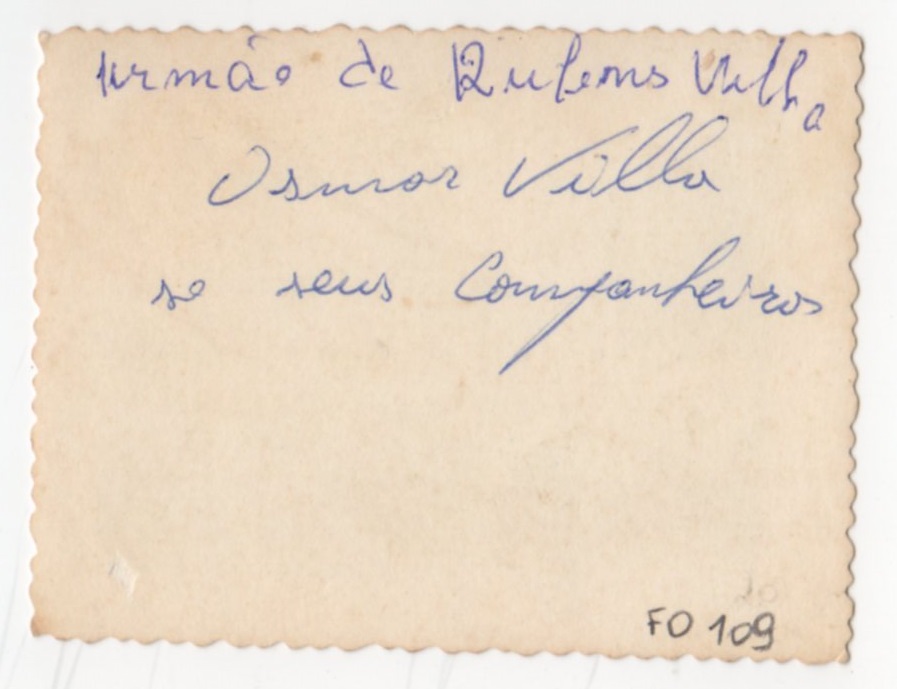 irmão de Rubens Villa
Osmar Villa
e seus Companheiros
FO 109